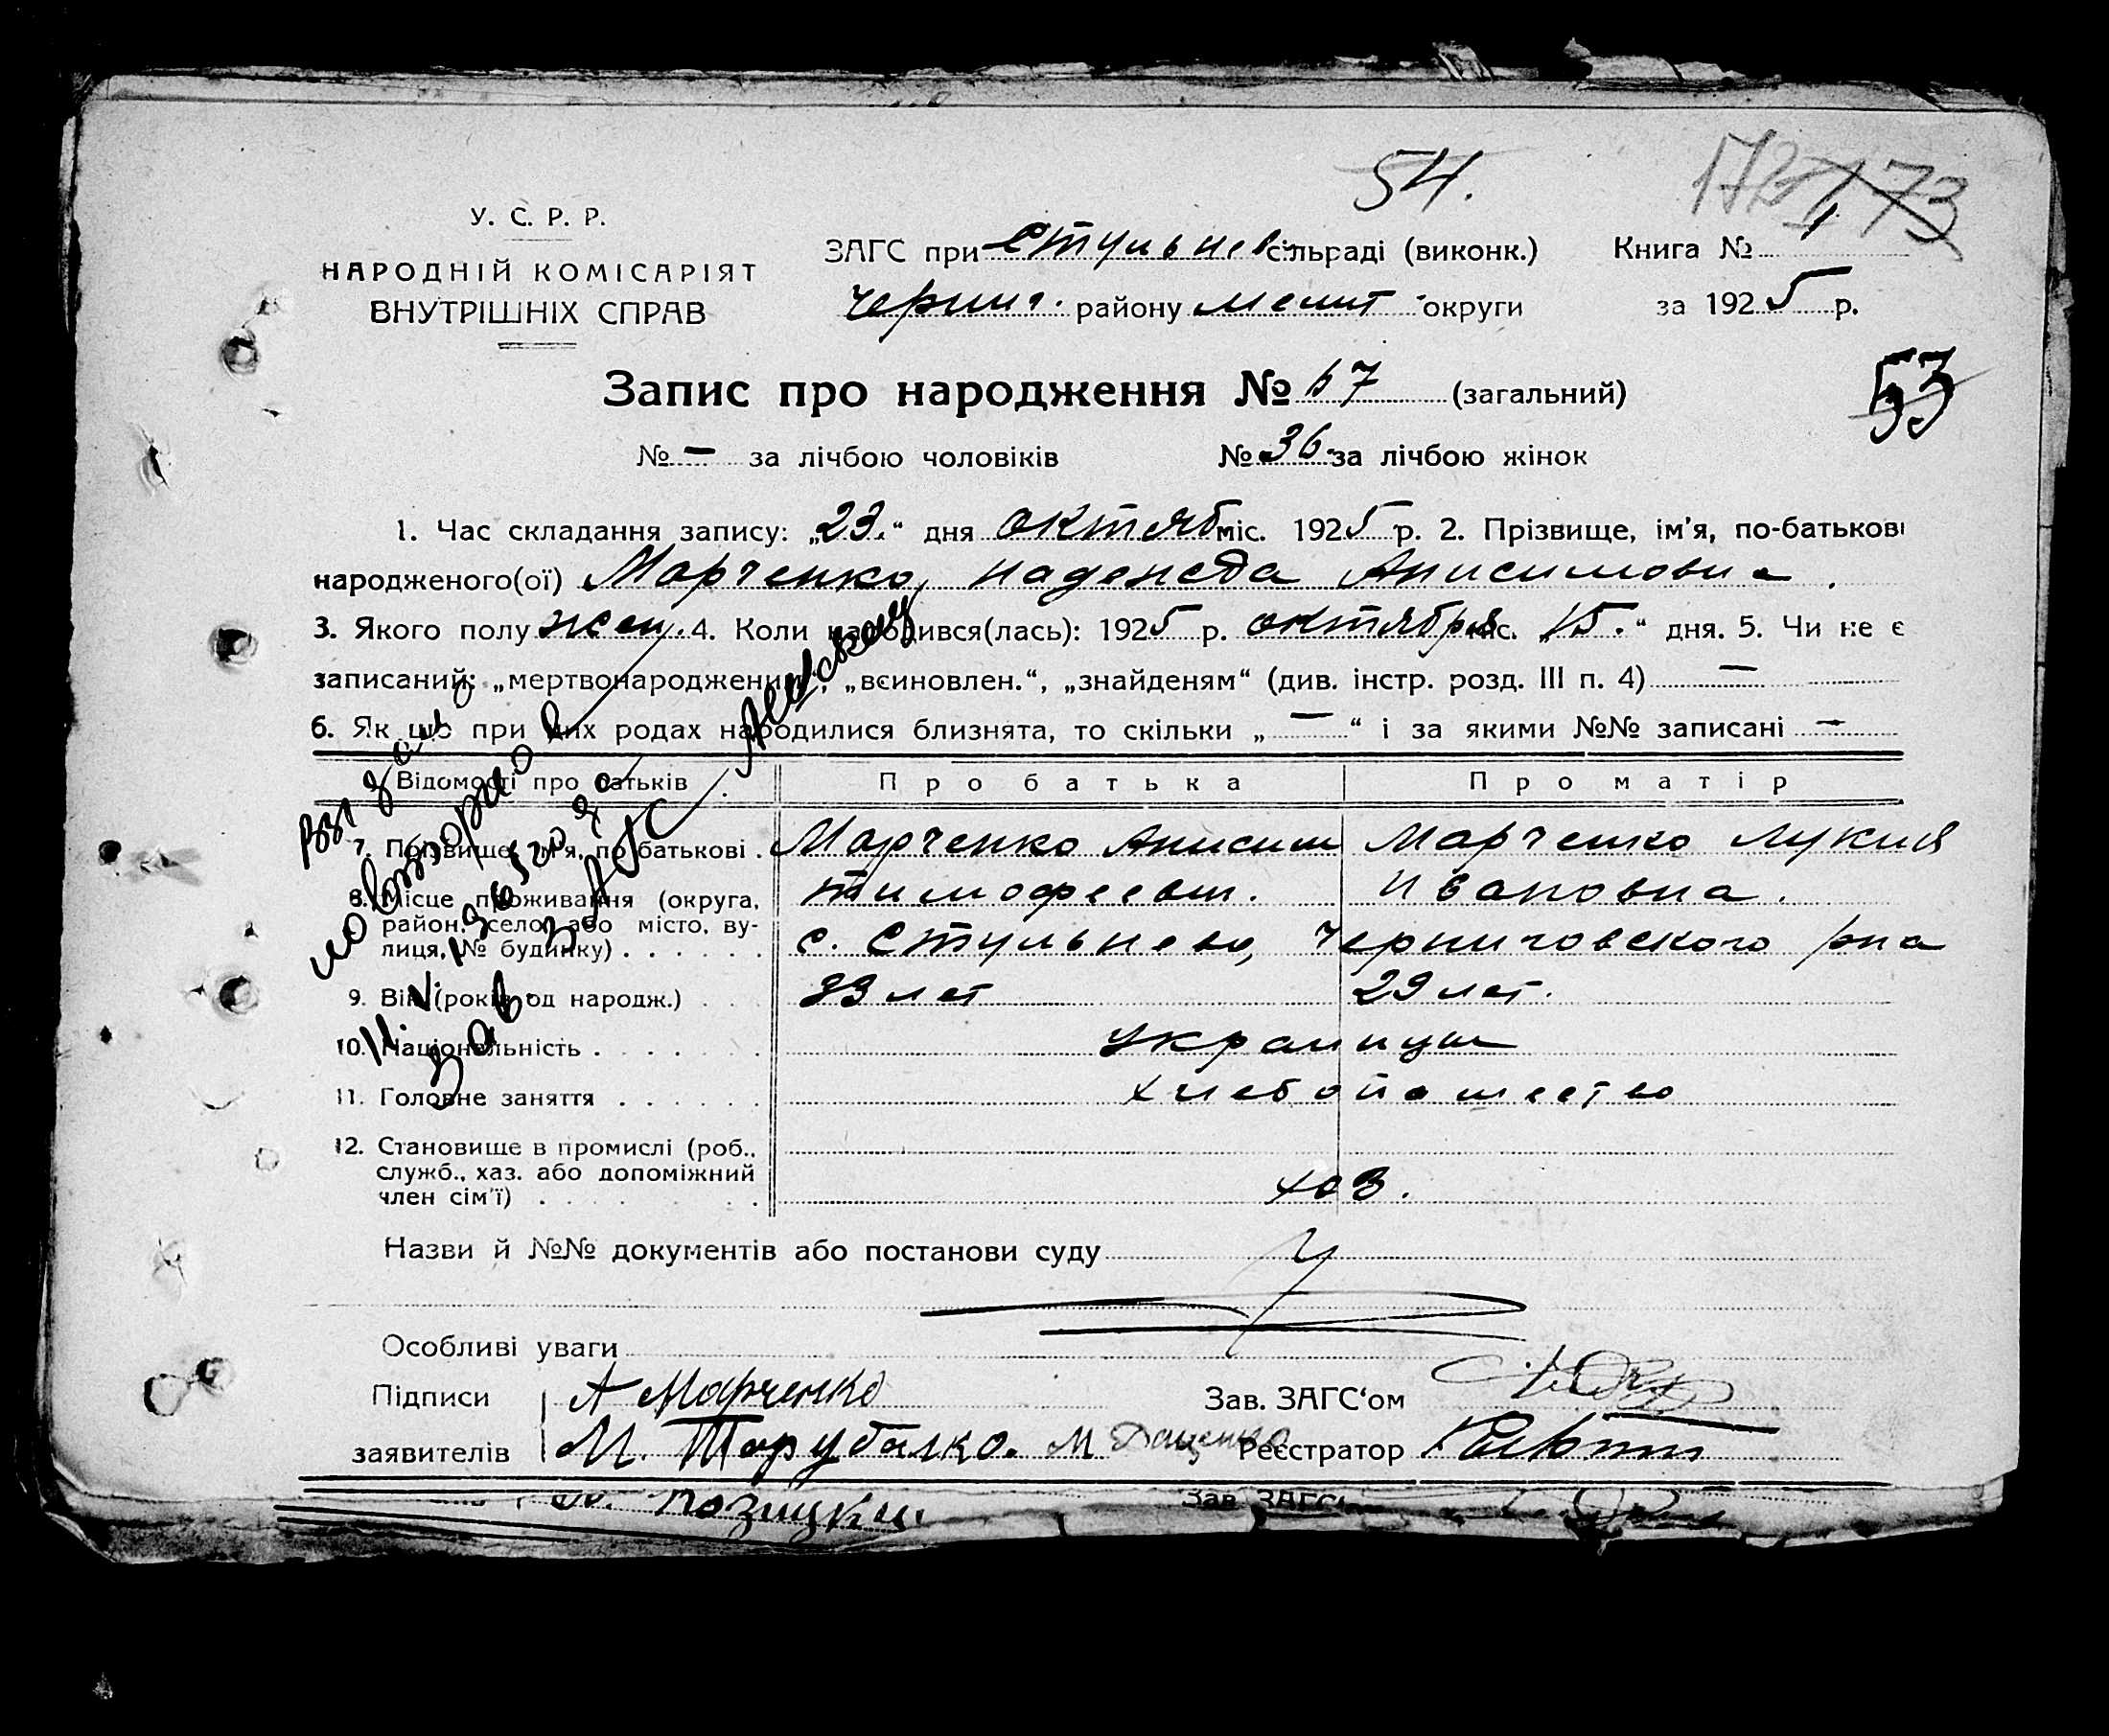 54.
173 173
У. С. Р. Р.
НАРОДНІЙ КОМІСАРІЯТ
ВНУТРІШНІХ СПРАВ
ЗАГС при Стульнев сільраді (виконк.)
Черниг. району Мелит округи
Книга № 1
за 1925 р.
53
Запис про народження № 67 (загальний)
№ — за лічбою чоловіків № 36 за лічбою жінок
1. Час складання запису: „23.“ дня октяб міс. 1925 р. 2. Прізвище, ім'я, по-батькові
народженого(ої) Марченко, Надежда Анисимовна.
3. Якого полу жен. 4. Коли народився(лась): 1925 р. октября міс. „15.“ дня. 5. Чи не є
записаний: „мертвонароджений“, „всиновлен.“, „знайденям“ (див. інстр. розд. III п. 4) —
6. Як що при цих родах народилися близнята, то скільки „—“ і за якими №№ записані —
Відомості про батьків Про батька Про матір
7. Прізвище, ім'я, по-батькові . Марченко Анисим Марченко Лукия
Тимофеевич. Ивановна.
8. Місце проживання (округа,
район, село, або місто, ву-
лиця, № будинку) . . . . . . с. Стульнево, Черниговского рна
9. Вік (років од народж.) . . 33 лет 29 лет.
10. Національність . . . . . . украинцы
11. Головне заняття . . . . . . хлебопашество
12. Становище в промислі (роб.,
служб., хаз. або допоміжний
член сім'ї) . . . . . . хоз.
Назви й №№ документів або постанови суду
Особливі уваги
Підписи А Марченко Зав. ЗАГС'ом
заявителів М. Тарубалко. М Даценко Реєстратор
Позицки Зав. ЗАГС
повторно
Зав ЗАГС